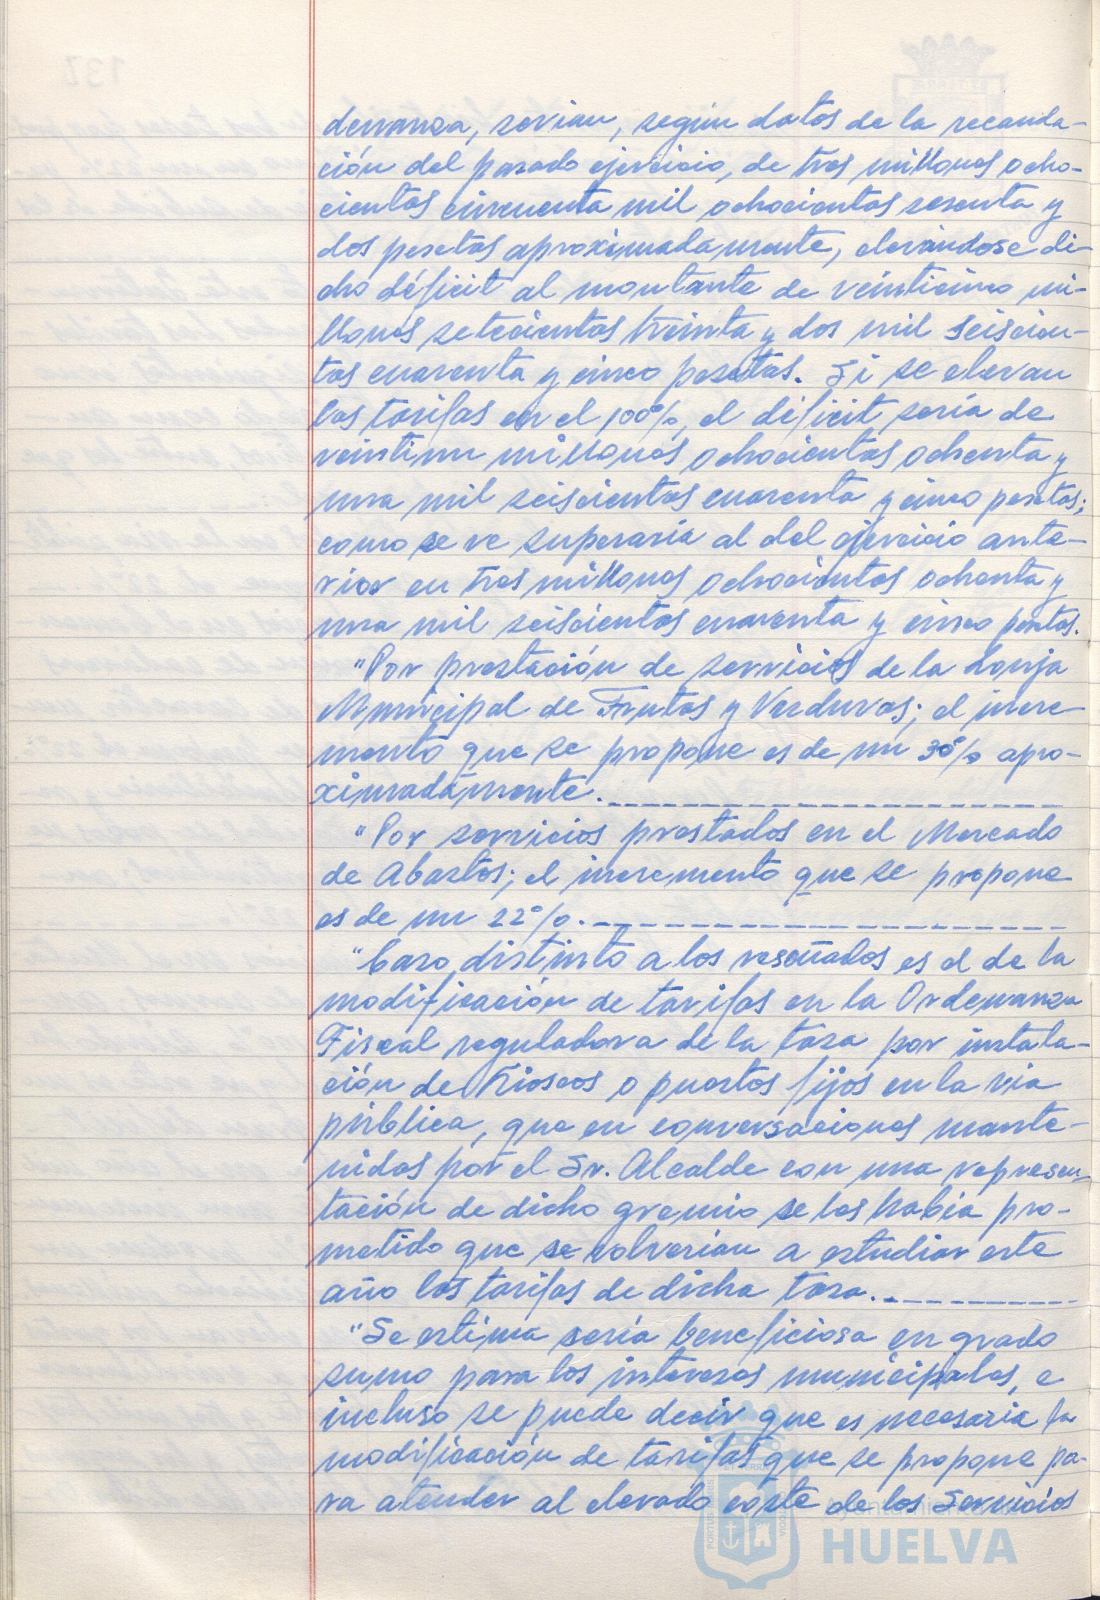 denanza, serian, según datos de la recauda-
ción del pasado ejercicio, de tres millones ocho-
cientas cincuenta mil ochocientas sesenta y
dos pesetas aproximadamente, elevándose di-
cho déficit al montante de veinticinco mi-
llones setecientas treinta y dos mil seiscien-
tas cuarenta y cinco pesetas. Si se elevan
las tarifas en el 100%, el déficit sería de
veintiun millones ochocientas ochenta y
una mil seiscientas cuarenta y cinco pesetas;
como se ve superaria al del ejercicio ante-
rior en tres millones ochocientas ochenta y
una mil seiscientas cuarenta y cinco pesetas.
"Por prestación de servicios de la Lonja
Municipal de Frutas y Verduras; el incre-
mento que se propone es de un 30% apro-
ximadamente.
"Por servicios prestados en el Mercado
de Abastos; el incremento que se propone
es de un 22%.
"Caso distinto a los reseñados es el de la
modificación de tarifas en la Ordenanza
Fiscal reguladora de la tasa por instala-
ción de Kioscos o puestos fijos en la via
pública, que en conversaciones mante-
nidas por el Sr. Alcalde con una represen-
tación de dicho gremio se les habia pro-
metido que se volverian a estudiar este
año las tarifas de dicha tasa.
"Se estima seria beneficiosa en grado
sumo para los intereses municipales, e
incluso se puede decir que es necesaria la
modificación de tarifas que se propone pa-
ra atender al elevado coste de los Servicios
Ayuntamiento de
HUELVA